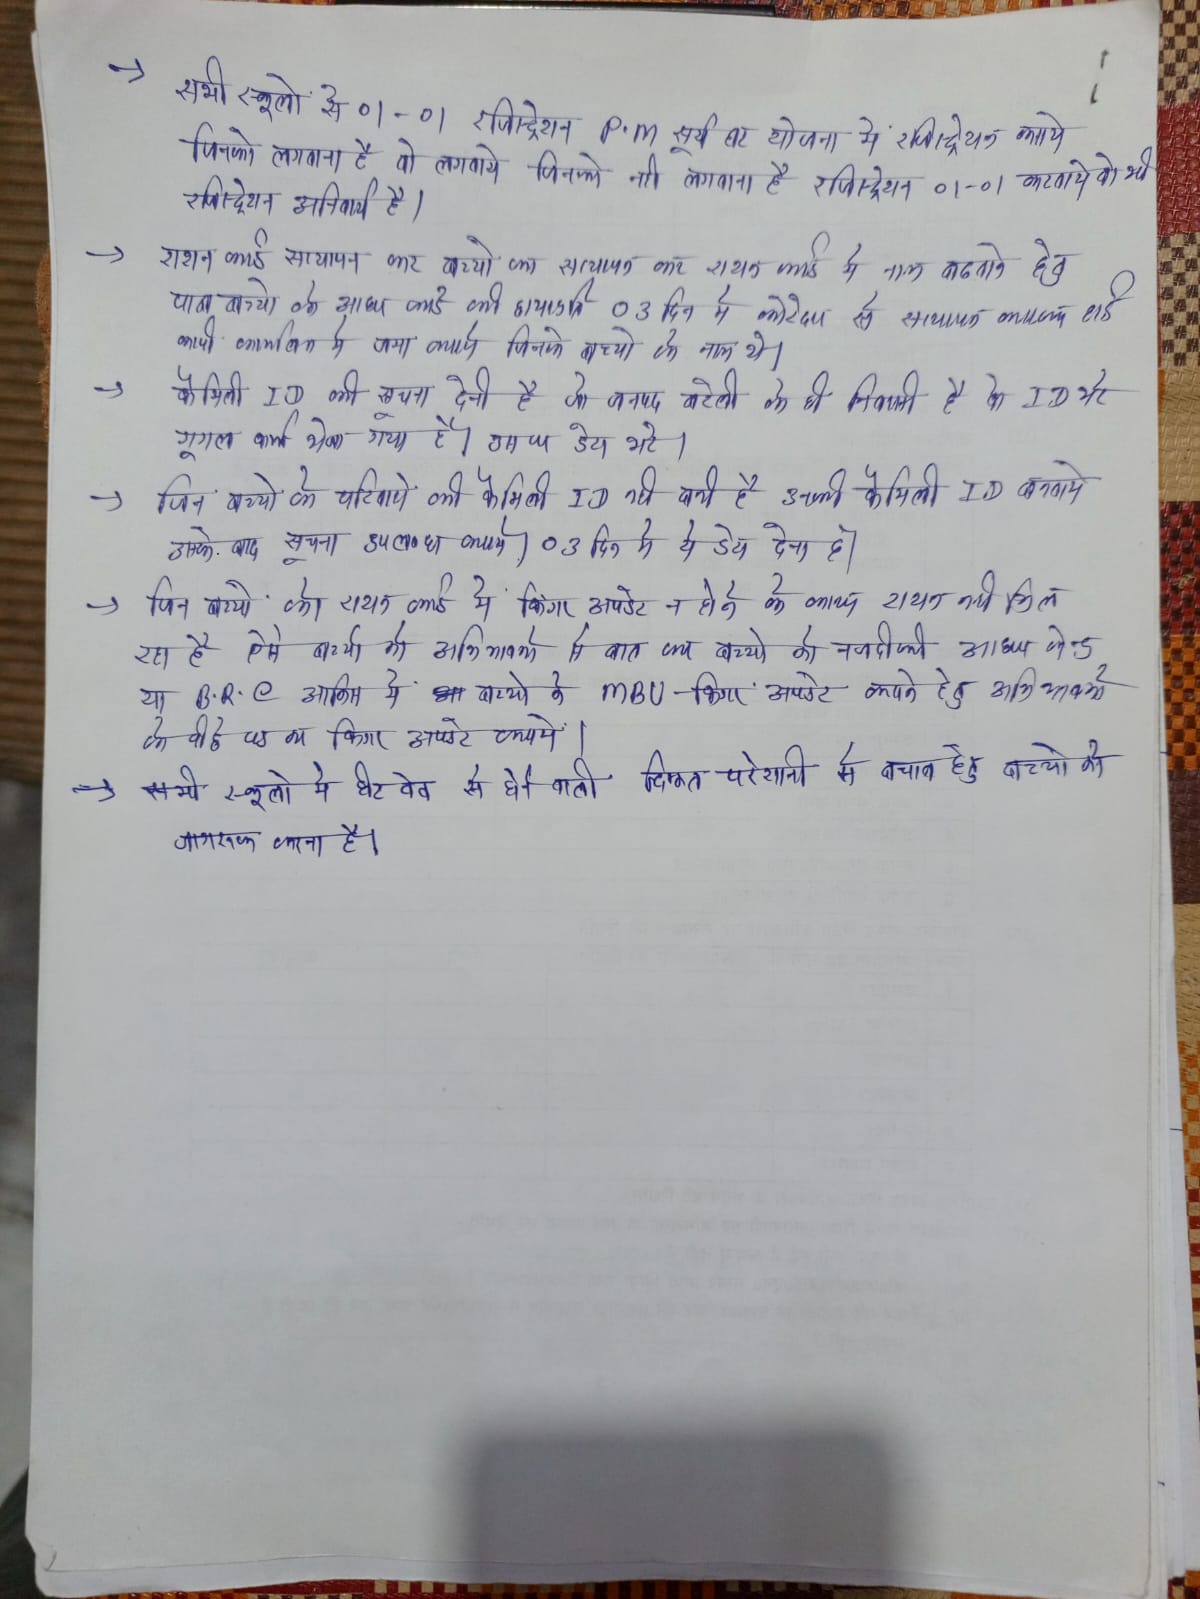 → सभी स्कूलों से 01-01 रजिस्ट्रेशन P.M सूर्य घर योजना में रजिस्ट्रेशन कराये
जिनको लगवाना है वो लगवाये जिनको नही लगवाना है रजिस्ट्रेशन 01-01 करवाये वो भी
रजिस्ट्रेशन अनिवार्य है।
→ राशन कार्ड सत्यापन कर बच्चो का सत्यापन कर राशन कार्ड मे नाम बढवाने हेतु
पात्र बच्चो के आधार कार्ड की छायाप्रति 03 दिन मे कोटेदार से सत्यापन कराकर हार्ड
कापी कार्यालय मे जमा कराये जिनके बच्चो के नाम थे।
→ फैमिली ID की सूचना देनी है जो जनपद बरेली के ही निवासी है के ID भरे
गूगल फार्म भेजा गया है। उस पर डेटा भरे।
→ जिन बच्चो के परिवारो की फैमिली ID नही बनी है उनकी फैमिली ID बनवाये
उसके बाद सूचना उपलब्ध कराये। 03 दिन मे ये डेटा देना है।
→ जिन बच्चो को राशन कार्ड में फिंगर अपडेट न होने के कारण राशन नही मिल
रहा है ऐसे बच्चो के अभिभावको से बात कर बच्चो को नजदीकी आधार केन्द्र
या B.R.C आफिस मे बच्चो के MBU-फिंगर अपडेट कराने हेतु अभिभावको
के पीछे पड कर फिंगर अपडेट कराये।
→ सभी स्कूलो मे हीट वेव से होने वाली दिक्कत परेशानी से बचाव हेतु बच्चो को
जागरूक करना है।